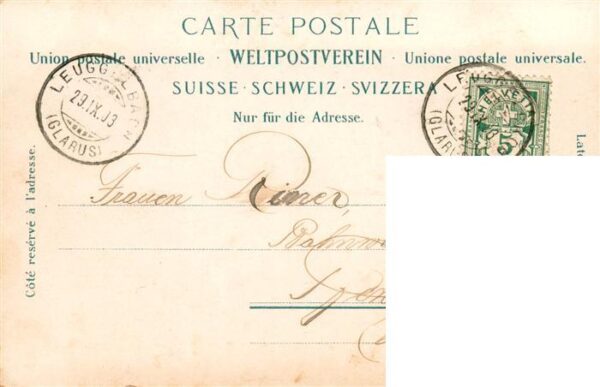 CARTE POSTALE
Union postale universelle · WELTPOSTVEREIN · Unione postale universale.
SUISSE · SCHWEIZ · SVIZZERA
Nur für die Adresse.
LEUGGELBACH
29.IX.03
(GLARUS)
HELVETIA
5
Côté resérvé à l'adresse.
Frauen